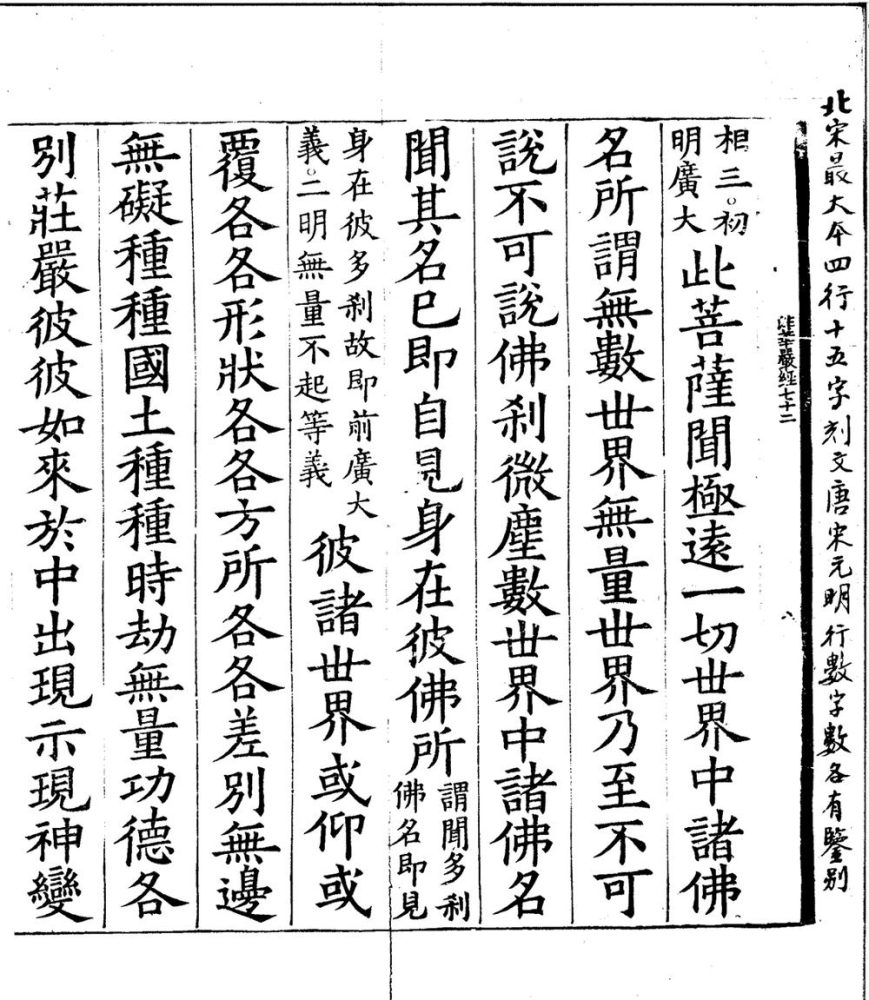 北宋最大本四行十五字刻文唐宋元明行數字數各有鑒別
華嚴經七十二
相三。初
明廣大
此菩薩聞極遠一切世界中諸佛
名所謂無數世界無量世界乃至不可
說不可說佛刹微塵數世界中諸佛名
聞其名已即自見身在彼佛所
謂聞多刹
佛名即見
身在彼多刹故即前廣大
義。二明無量不起等義
彼諸世界或仰或
覆各各形狀各各方所各各差別無邊
無礙種種國土種種時劫無量功德各
別莊嚴彼彼如來於中出現示現神變